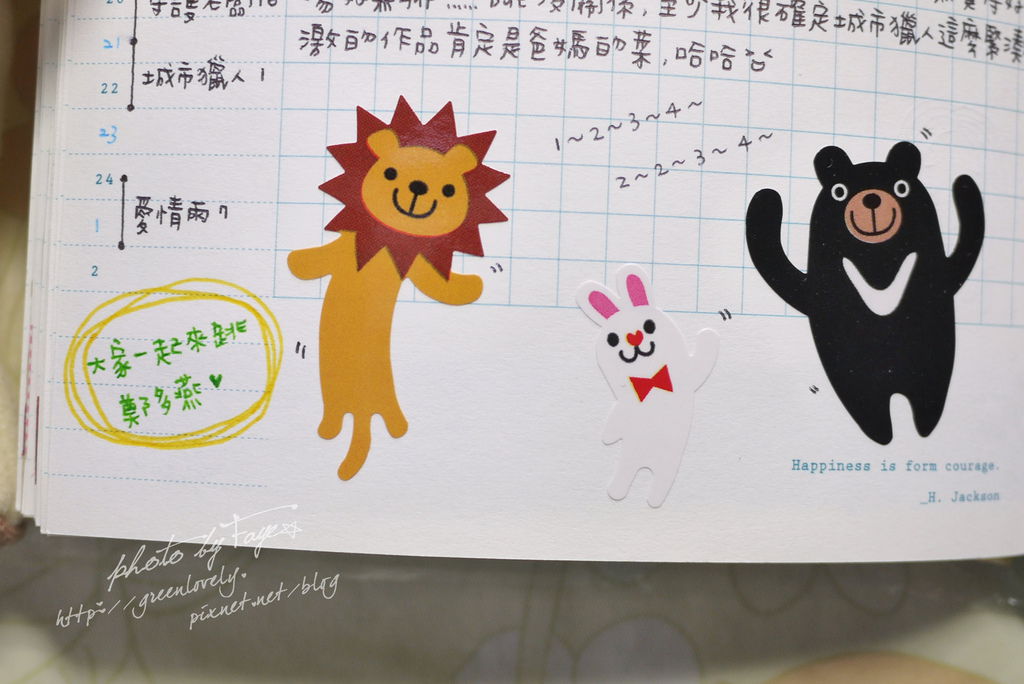 20
守護老闆
我很確定城市獵人這麼緊湊
21
激的作品肯定是爸媽的菜,哈哈哈
城市獵人1
22
23
1~2~3~4~
2~2~3~4~
24
愛情雨7
1
2
大家一起來跳
鄭多燕♥
Happiness is form courage.
_H. Jackson
photo by Faye☆
http://greenlovely.
pixnet.net/blog